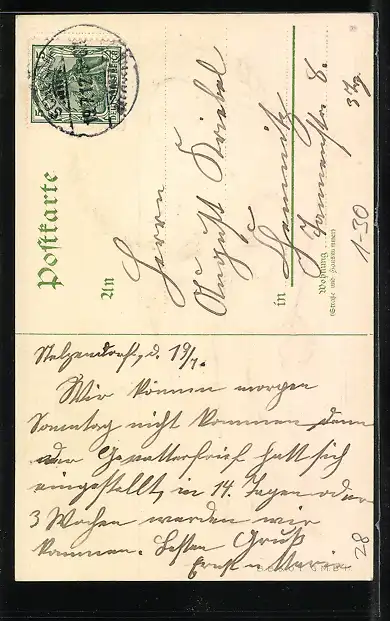 Postkarte
An
Herrn
August Kriebel
in Chemnitz
Wohnung
(Straße und Hausnummer)
8.
1-30
Stelzendorf, d. 19/7.
Wir können morgen
Sonntag nicht kommen, denn
der Gevatterbrief hatt sich
eingestellt, in 14. Tagen oder
3 Wochen werden wir
kommen. Besten Gruß
Ernst u. Marie
28